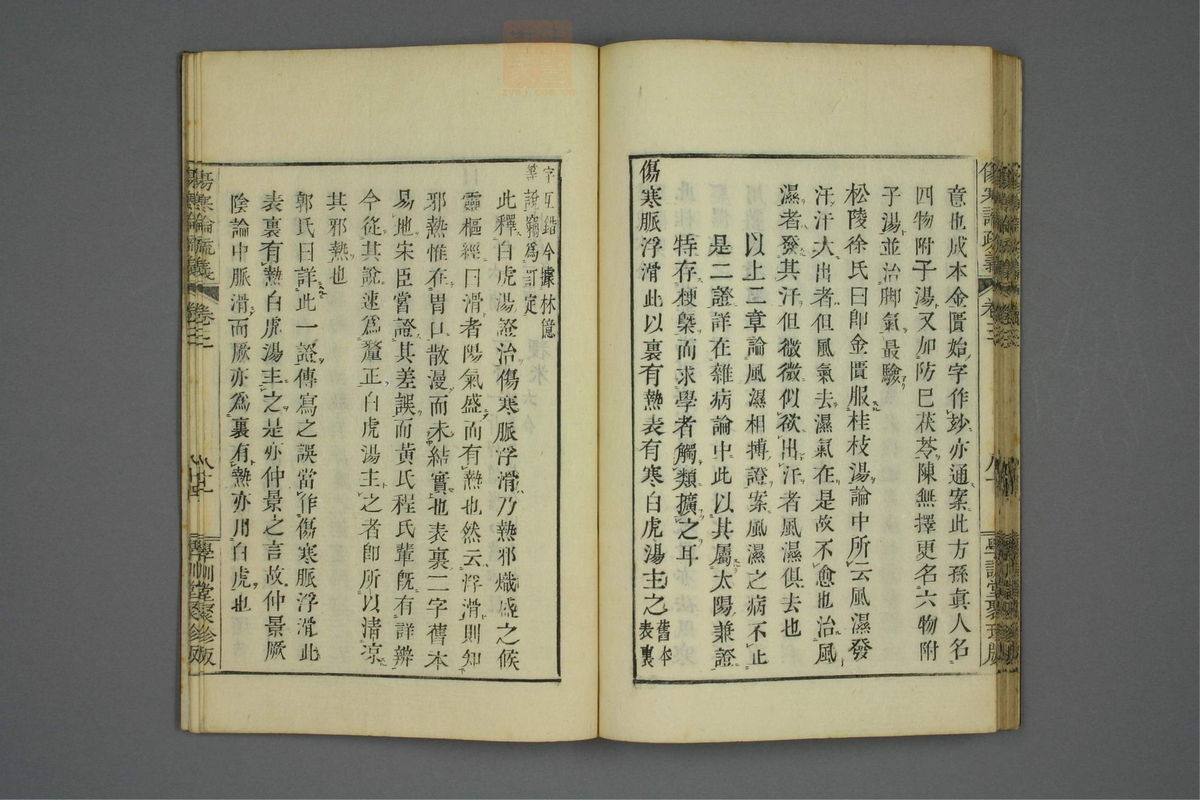 意也成本金匱始字作抄亦通案此方孫眞人名
四物附子湯又加防巳茯苓陳無擇更名六物附
子湯並治脚氣最驗
松陵徐氏曰卽金匱服桂枝湯論中所云風濕發
汗汗大出者但風氣去濕氣在是故不愈也治風
濕者發其汗但微微似欲出汗者風濕俱去也
以上二章論風濕相搏證案風濕之病不止
是二證詳在雜病論中此以其屬太陽兼證
特存梗槩而求學者觸類擴之耳
傷寒脈浮滑此以裏有熱表有寒白虎湯主之舊本表裏
字互錯今據林億等說竊爲訂定
此釋白虎湯證治傷寒脈浮滑乃熱邪熾盛之候
靈樞經曰滑者陽氣盛而有熱也然云浮滑則知
邪熱惟在胃口散漫而未結實也表裏二字舊本
易地宋臣嘗證其差誤而黃氏程氏輩旣有詳辨
今從其說速爲釐正白虎湯主之者卽所以清凉
其邪熱也
郭氏曰詳此一證傳寫之誤當作傷寒脈浮滑此
表裏有熱白虎湯主之是亦仲景之言故仲景厥
陰論中脈滑而厥亦爲裏有熱亦用白虎也
傷寒論疏義
卷三
學訓堂聚珍版